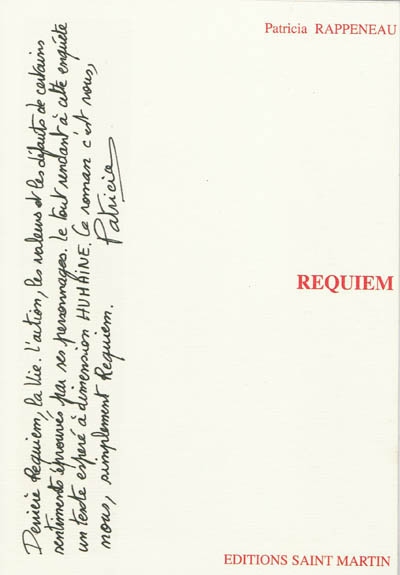 Patricia RAPPENEAU
REQUIEM
Derrière Requiem, la Vie. L'action, les valeurs et les défauts de certains
sentiments éprouvés par ses personnages. Le tout rendant à cette enquête
un texte espéré à dimension HUMAINE. Ce roman c'est nous,
nous, simplement Requiem.
Patricia
EDITIONS SAINT MARTIN